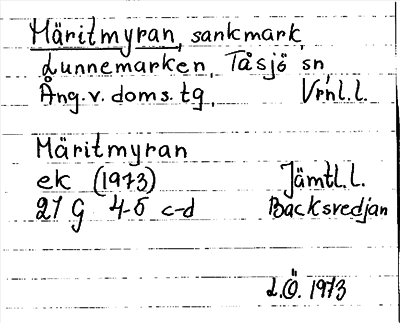 Märitmyran, sankmark,
Lunnemarken, Tåsjö sn,
Ång.v. doms. tg, Vrnl.l.
Märitmyran
ek (1973) Jämtl.l.
27 G 4-5 c-d Backsvedjan
L.Ö. 1973